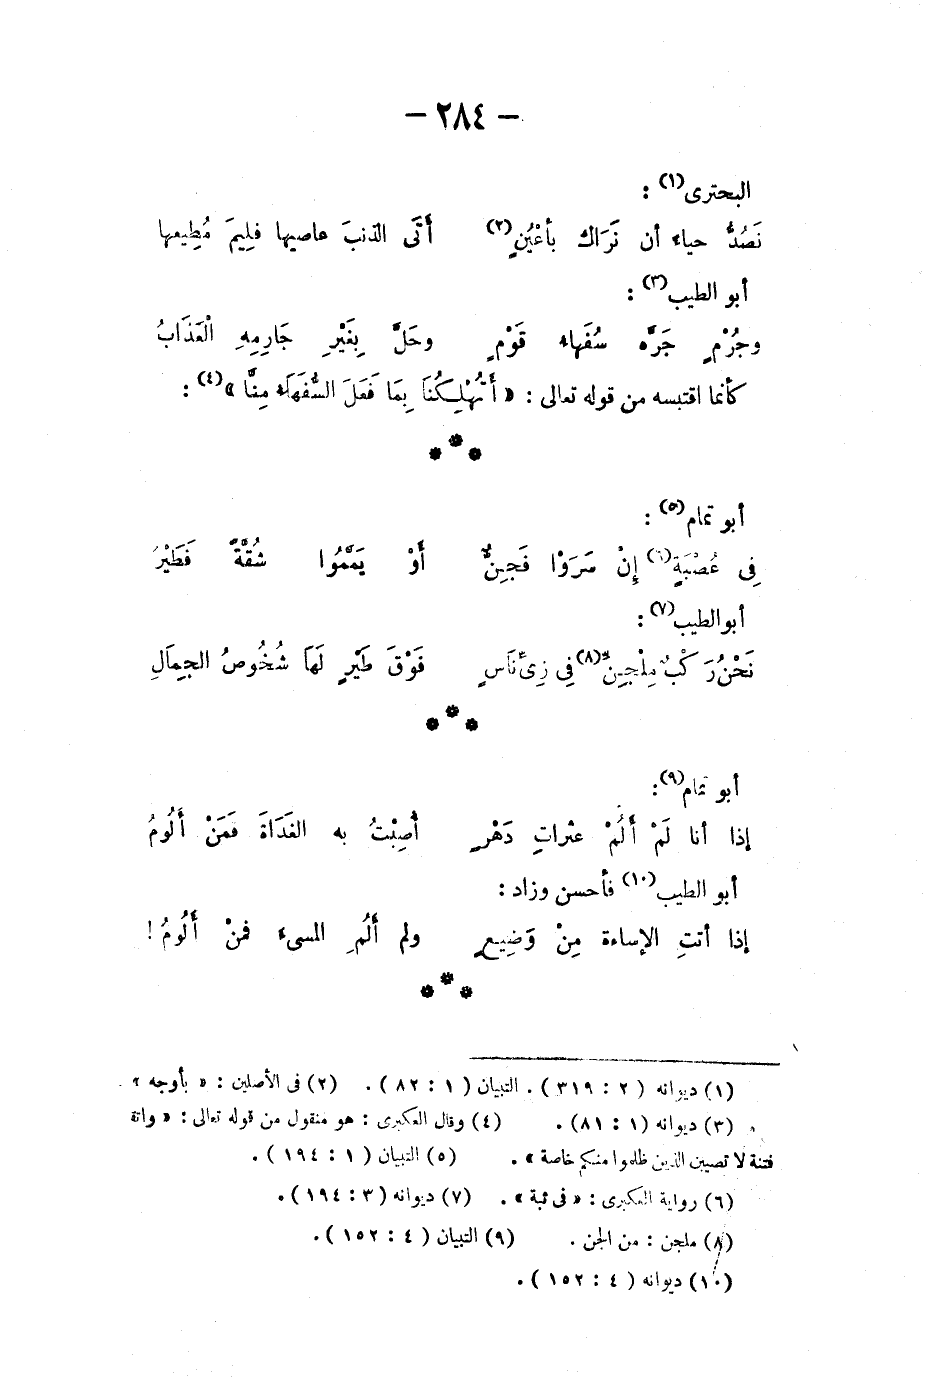 – ٢٨٤ –
البحترى(١) :
نَصُدُّ حياء أن نَرَاكَ بأعْيُنٍ(٢) أَتَى الذنبَ عاصيها فلِيمَ مُطِيعها
أبو الطيب(٣) :
وجُرْمٍ جَرَّه سُفَهاء قَوْمٍ وحَلَّ بِغَيْرِ جَارِمِهِ الْعَذَابُ
كأنما اقتبسه من قوله تعالى : « أَتُهْلِكُنَا بِمَا فَعَلَ السُّفَهَاء مِنَّا »(٤) :
***
أبو تمام(٥) :
فِى عُصْبَةٍ(٦) إِنْ سَرَوْا فَجِنٌّ أَوْ يَمَّمُوا شُقَّةً فَطَيْرُ
أبوالطيب(٧) :
نَحْنُ رَكْبٌ مِلْجِنِّ(٨) فِى زِىِّ نَاسٍ فَوْقَ طَيْرٍ لَهَا شُخُوصُ الجِمَالِ
***
أبو تمام(٩):
إذا أنا لَمْ أَلُمْ عثراتِ دَهْرٍ أُصِبْتُ به الغَدَاةَ فَمَنْ أَلُومُ
أبو الطيب(١٠) فأحسن وزاد :
إذا أتتِ الإساءة مِنْ وَضِيعٍ ولم أَلُمِ المسىء فمنْ أَلُومُ !
***
(١) ديوانه ( ٢ : ٣١٩ ) . التبيان ( ١ : ٨٢ ) . (٢) فى الأصلين : « بأوجه » .
(٣) ديوانه (١ : ٨١) . (٤) وقال العكبرى : هو منقول من قوله تعالى : « واتقوا
فتنة لا تصيبن الذين ظلموا منكم خاصة » . (٥) التبيان ( ١ : ١٩٤ ) .
(٦) رواية العكبرى : « فى ثبة » . (٧) ديوانه ( ٣ : ١٩٤ ) .
(٨) ملجن : من الجن . (٩) التبيان ( ٤ : ١٥٢ ) .
(١٠) ديوانه ( ٤ : ١٥٢ ) .